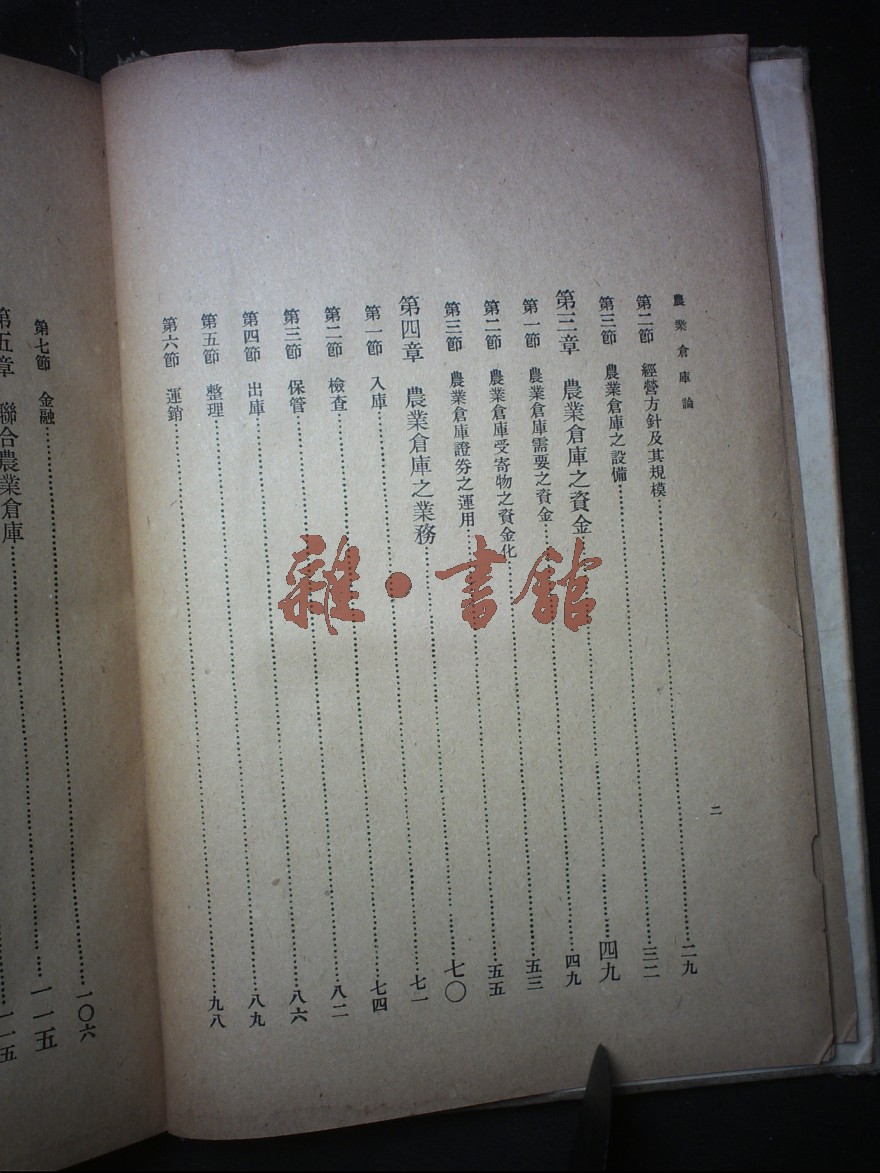 農業倉庫論
二
第二節 經營方針及其規模……二九
第三節 農業倉庫之設備……三二
第三章 農業倉庫之資金……四九
第一節 農業倉庫需要之資金……四九
第二節 農業倉庫受寄物之資金化……五三
第三節 農業倉庫證券之運用……五五
第四章 農業倉庫之業務……七〇
第一節 入庫……七一
第二節 檢查……七四
第三節 保管……八二
第四節 出庫……八六
第五節 整理……八九
第六節 運銷……九八
第七節 金融……一〇六
第五章 聯合農業倉庫……一一五
一一五
雜·書館